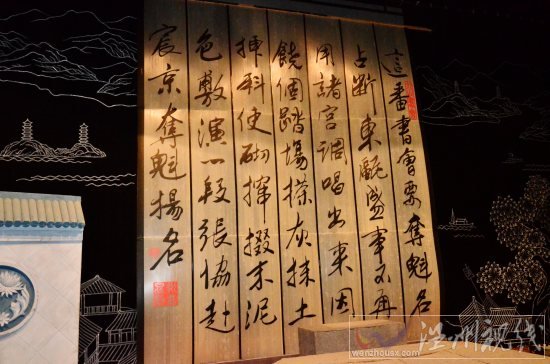 這番書會要奪魁名
占断東甌盛事又再
用諸宫調唱出来因
饒個踏場搽灰抹土
挿科使砌撺掇末泥
色敷演一段張協赴
宸京奪魁揚名
温州视线
wenzhousx.com